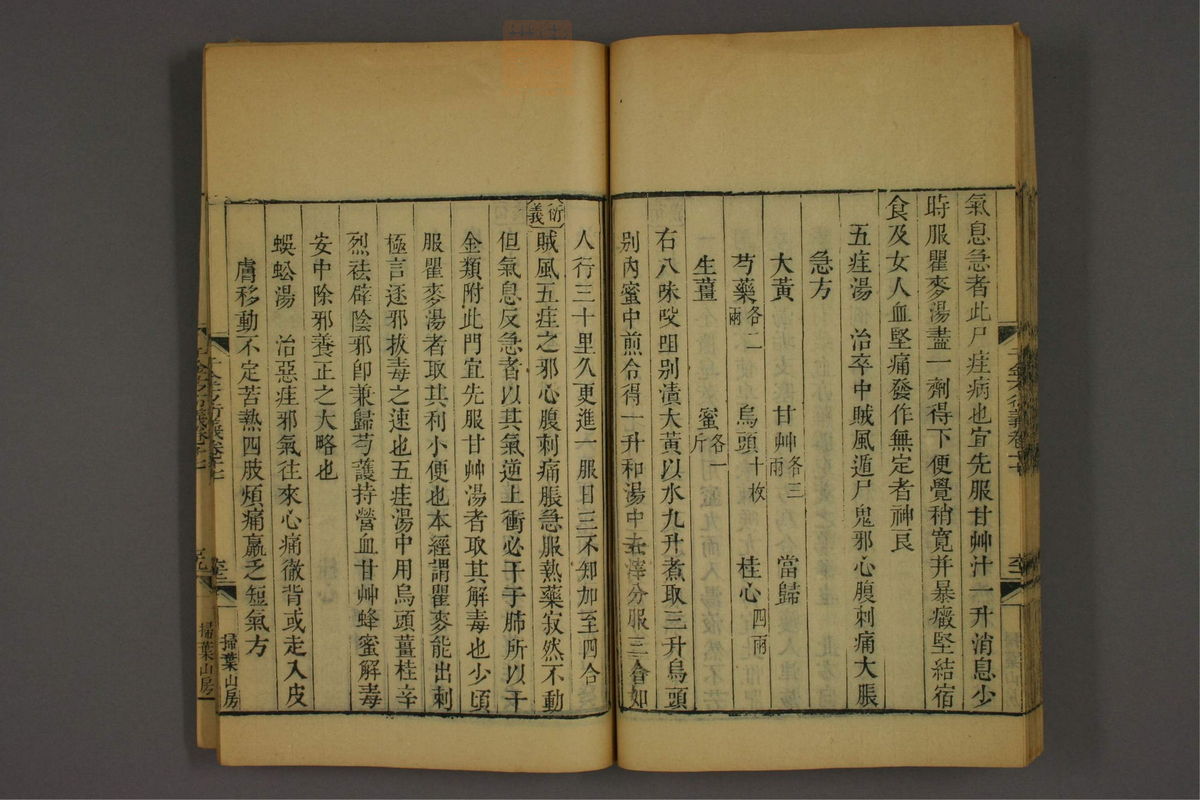 氣息急者此尸疰病也宜先服甘艸汁一升消息少
時服瞿麥湯盡一劑得下便覺稍寬并暴癥堅結宿
食及女人血堅痛發作無定者神良
五疰湯 治卒中賊風遁尸鬼邪心腹刺痛大脹
急方
大黃 甘艸各三兩 當歸
芍藥各二兩 烏頭十枚 桂心四兩
生薑 蜜各一斤
右八味㕮咀别漬大黃以水九升煮取三升烏頭
别內蜜中煎令得一升和湯中分服三合如
人行三十里久更進一服日三不知加至四合
衍義 賊風五疰之邪心腹刺痛脹急服熱藥寂然不動
但氣息反急者以其氣逆上衝必干于肺所以于
金類附此門宜先服甘艸湯者取其解毒也少頃
服瞿麥湯者取其利小便也本經謂瞿麥能出刺
極言逐邪拔毒之速也五疰湯中用烏頭薑桂辛
烈祛辟陰邪卽兼歸芍護持營血甘艸蜂蜜解毒
安中除邪養正之大略也
蜈蚣湯 治惡疰邪氣往來心痛徹背或走入皮
膚移動不定苦熱四肢煩痛羸乏短氣方
掃葉山房
掃葉山房